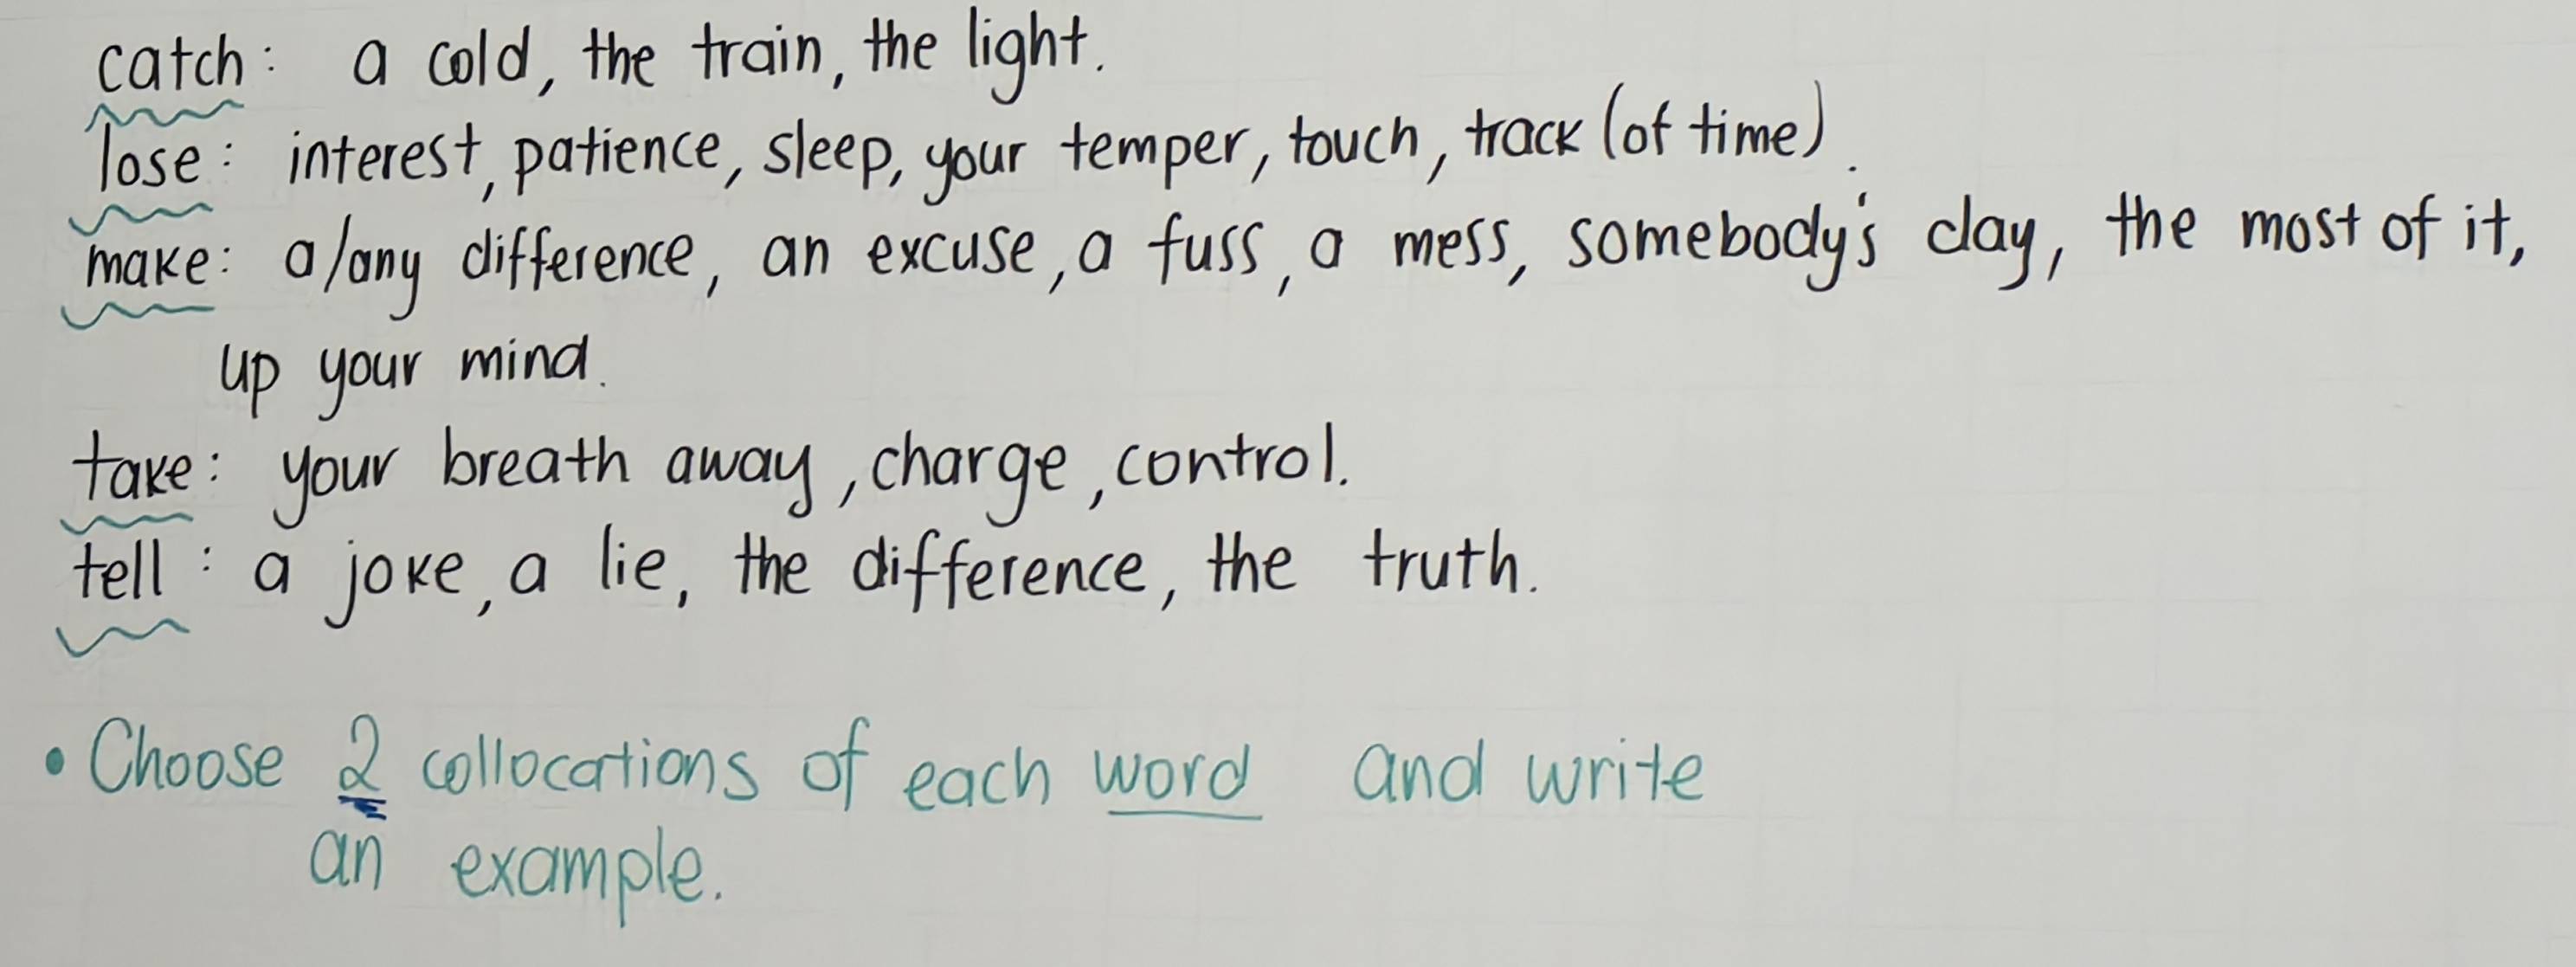 catch: a cold, the train, the light.
lose: interest, patience, sleep, your temper, touch, track (of time).
make: a/any difference, an excuse, a fuss, a mess, somebody's day, the most of it,
up your mind.
take: your breath away, charge, control.
tell: a joke, a lie, the difference, the truth.
• Choose 2 collocations of each word and write
an example.